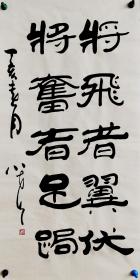 將飛者翼伏
將奮者足跼
丁亥春月